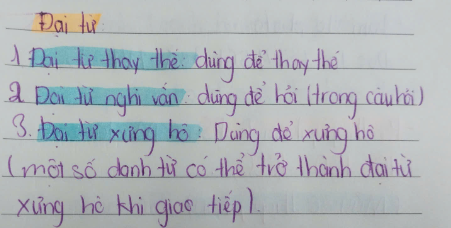 Đại từ
1 Đại từ thay thế: dùng để thay thế
2 Đại từ nghi vấn: dùng để hỏi (trong câu hỏi)
3. Đại từ xưng hô: Dùng để xưng hô
(một số danh từ có thể trở thành đại từ
xưng hô khi giao tiếp).